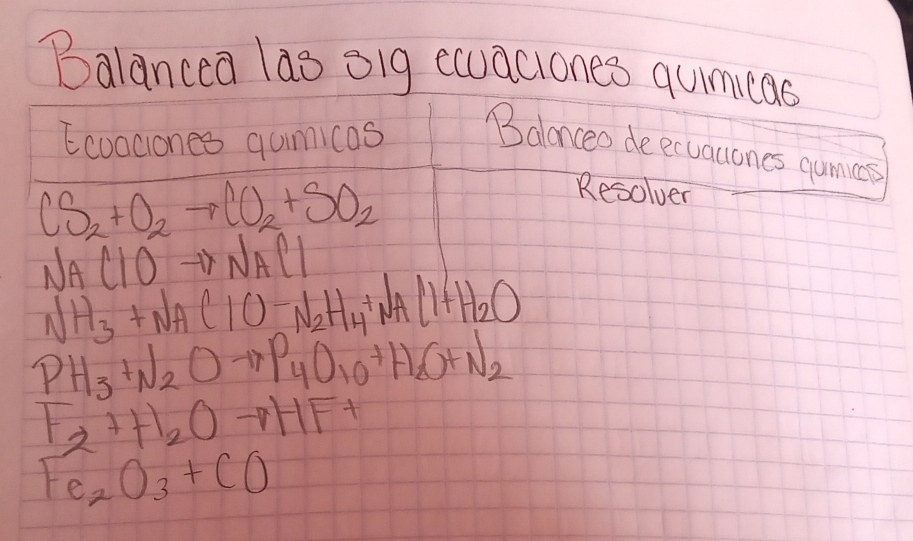 Balancea las sig ecuaciones quimicas
Ecuaciones quimicas
Balanceo de ecuaciones quimicas
Resolver
CS₂+O₂ →CO₂+SO₂
NAClO → NACl
NH₃ +NAClO-N₂H₄+NACl+H₂O
PH₃+N₂O→P₄O₁₀+H₂O+N₂
F₂+H₂O →HF+
Fe₂O₃+CO